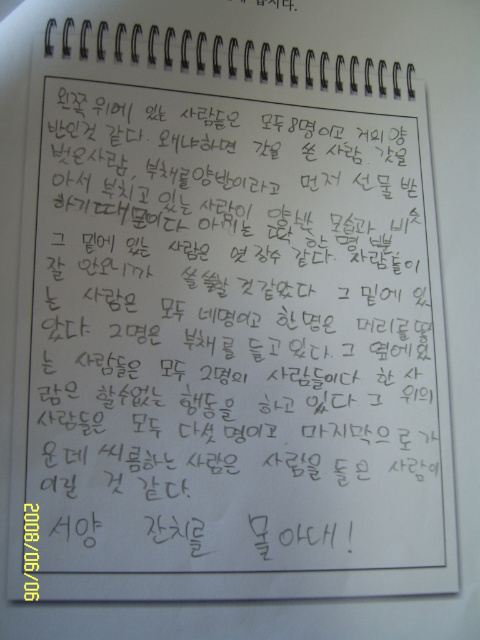 합니다.
왼쪽 위에 있는 사람들은 모두 8명이고 거의 양
반인것 같다. 왜냐하면 갓을 쓴 사람, 갓을
벗은사람, 부채를 양방이라고 먼저 선물 받
아서 부치고 있는 사람이 양반 모습과 비슷
하기 때문이다. 아기는 딱 한 명 뿐
그 밑에 있는 사람은 엿장수 같다. 사람들이
잘 안오니까 쓸쓸할 것 같았다 그 밑에 있
는 사람은 모두 네명이고 한명은 머리를 땋
았다. 2명은 부채를 들고 있다. 그 옆에 있
는 사람들은 모두 2명의 사람들이다 한 사
람은 할수없는 행동을 하고 있다 그 위의
사람들은 모두 다섯 명이고, 마지막으로 가
운데 씨름하는 사람은 사람을 든 사람이
이길 것 같다.
서양 잔치를 몰아내!
2008/06/06